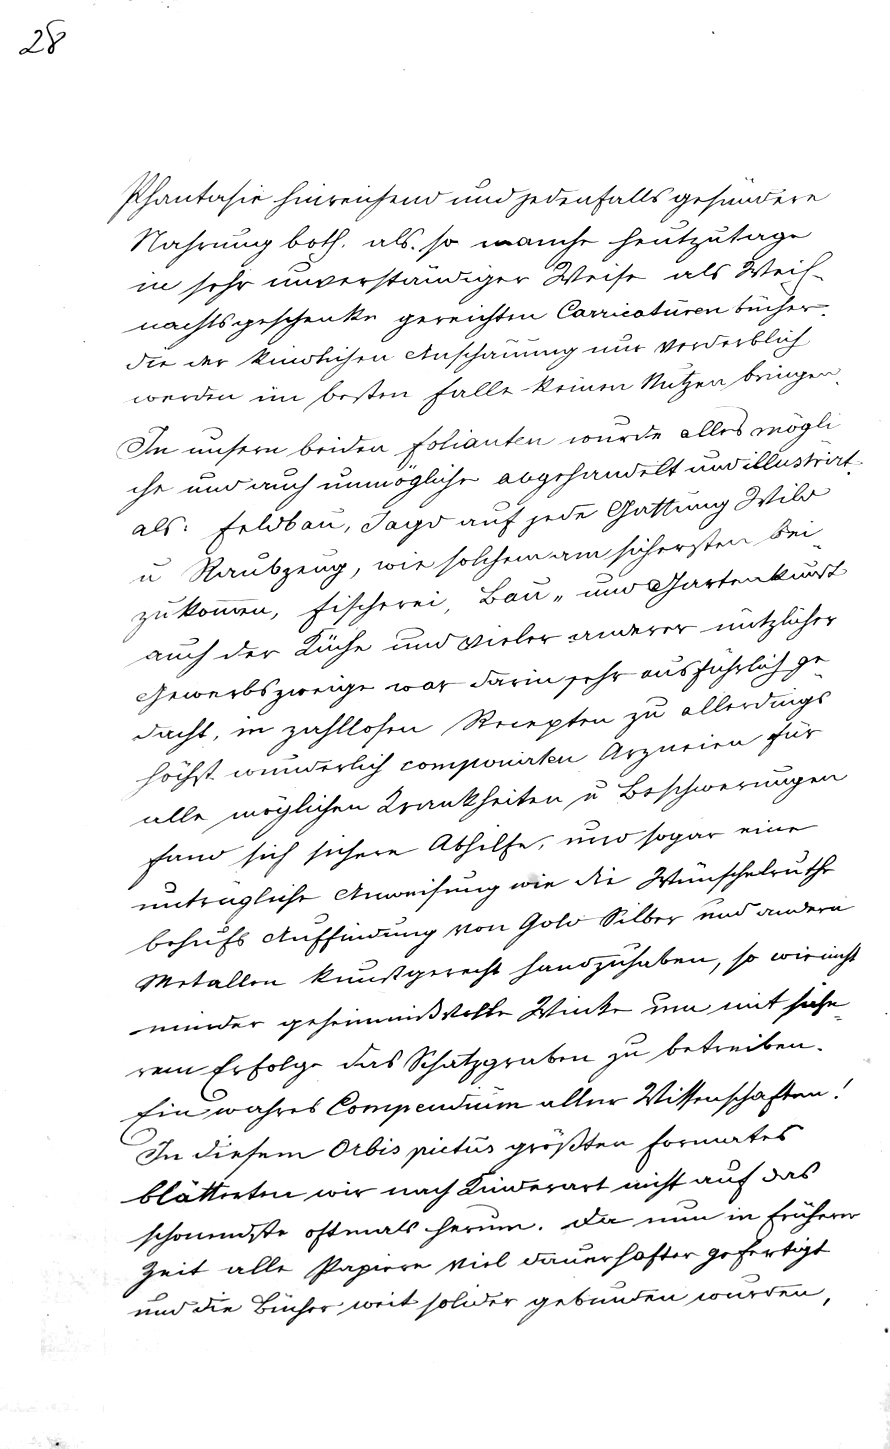 28
Phantasie hinreichend und jedenfalls gesündere
Nahrung both. als. so manche heutzutage
in sehr unverständiger Weise als Weih-
nachtsgeschenke gereichten Carricaturen bücher.
die der kindlichen Anschauung nur verderblich
werden im besten Falle keinen Nutzen bringen.
In unsern beiden Folianten wurde alles mögli
che und auch unmögliche abgehandelt und illustrirt.
als: Feldbau, Jagd auf jede Gattung Wild
u Raubzeug, wie solchem am sichersten bei-
zukom̅en, Fischerei, Bau- und Gartenkunst
auch der Küche und vieler anderer nützlicher
Gewerbszweige war darin sehr ausführlich ge-
dacht, in zahllosen Recepten zu allerdings
höchst wunderlich componirten Arzneien für
alle möglichen Krankheiten u Beschwerungen
fand sich sichere Abhilfe, und sogar eine
untrügliche Anweisung wie die Wünschelruthe
behufs Auffindung von Gold Silber und andern
Metallen kunstgerecht handzuhaben, so wie nicht
minder geheimnißvolle Winke um mit siche-
rem Erfolge das Schatzgraben zu betreiben.
Ein wahres Compendium aller Wissenschaften!
In diesem Orbis pictus größten Formates
blätterten wir nach Kinderart nicht auf das
schonendste oftmals herum. Da nun in früherer
Zeit alle Papiere viel dauerhafter gefertigt
und die Bücher weit solider gebunden wurden,